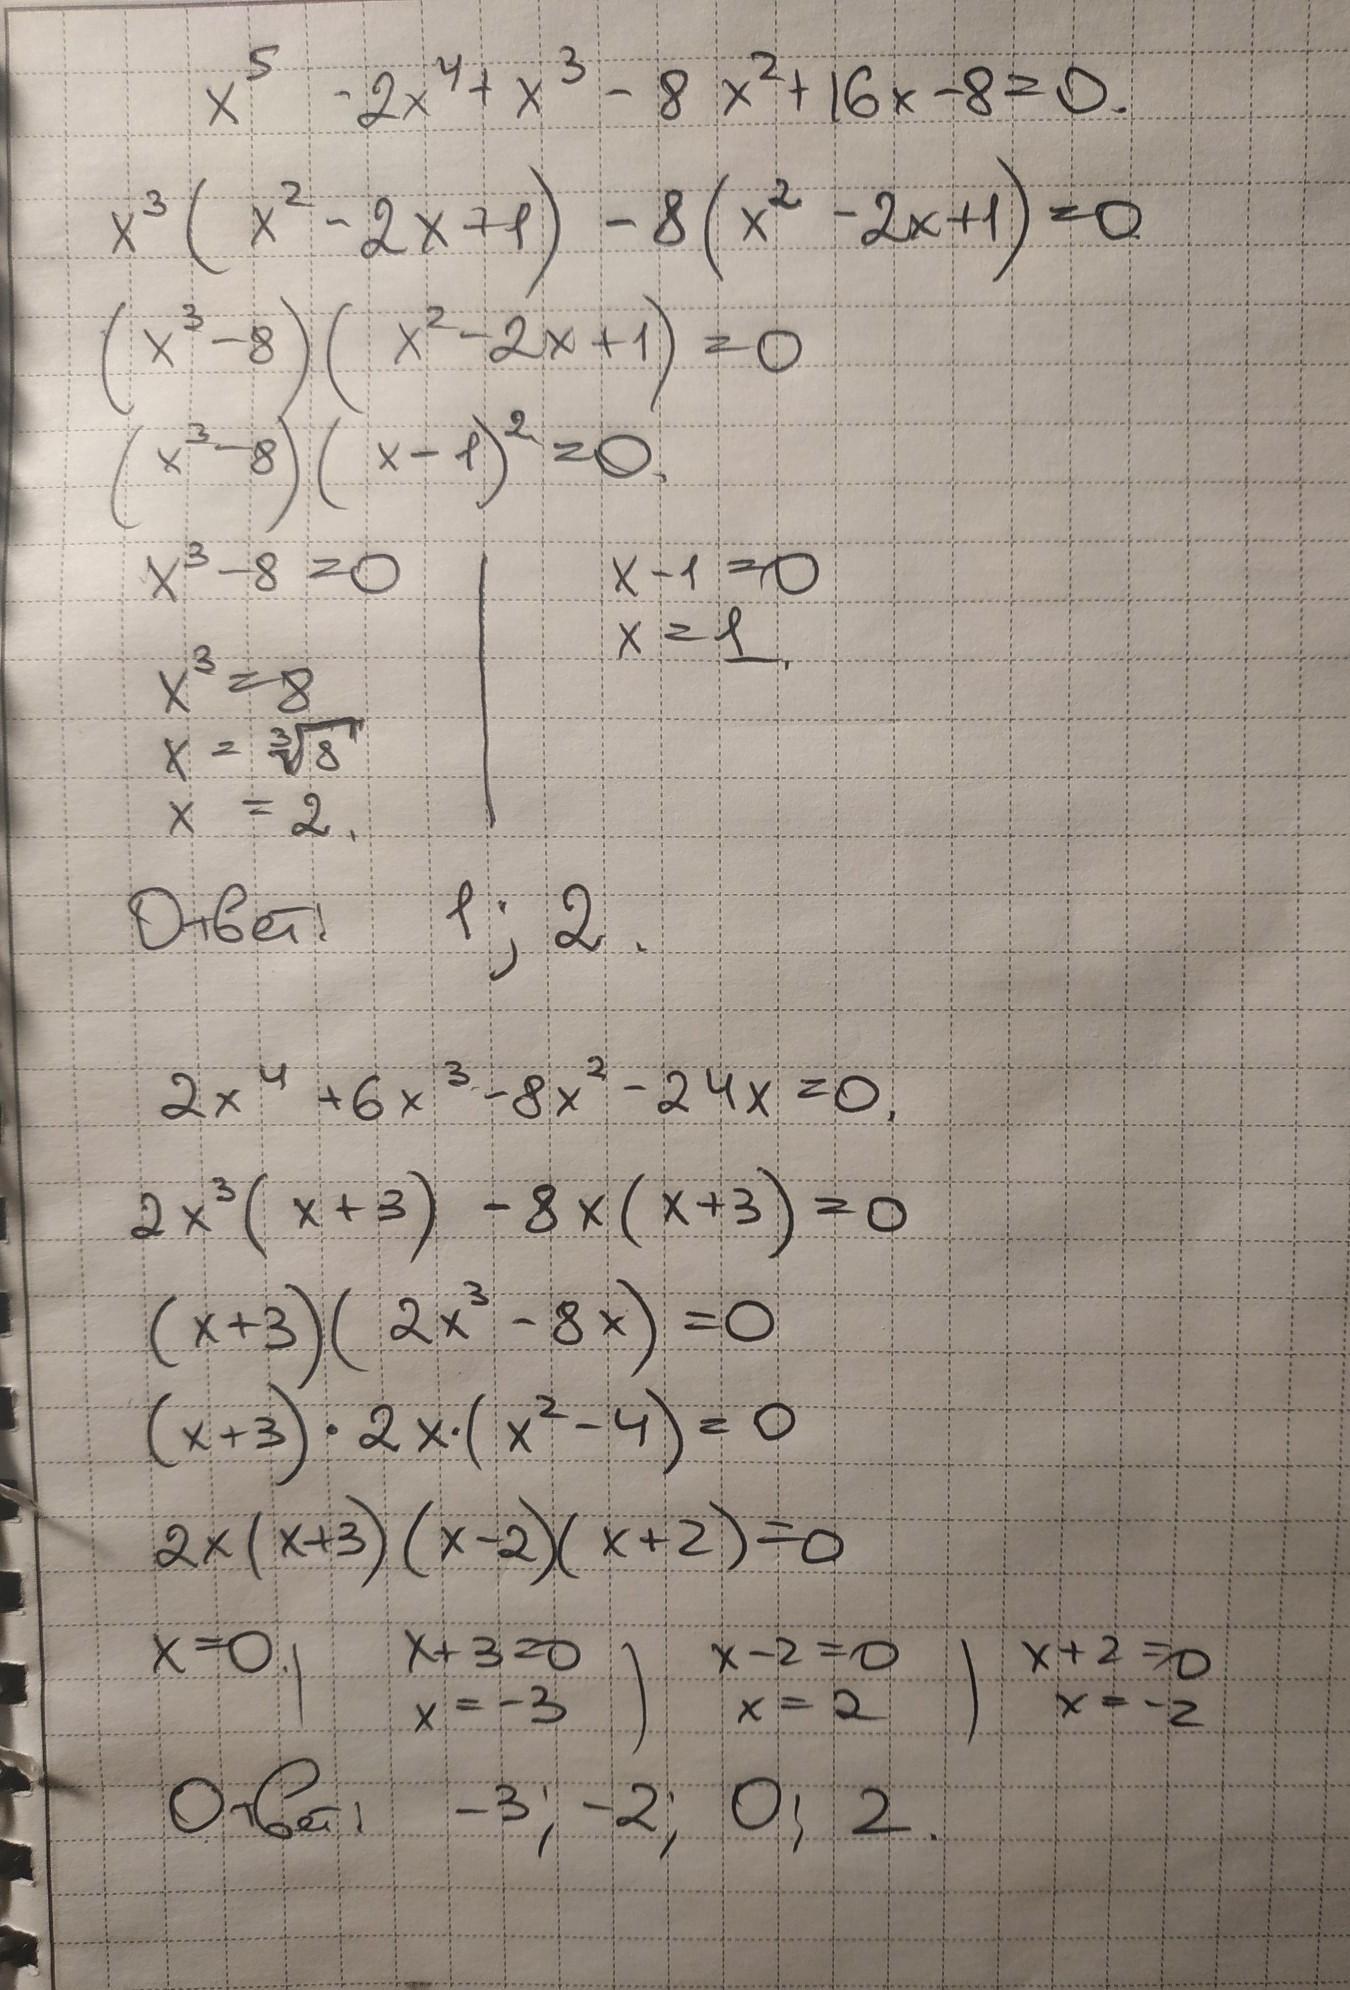 x⁵ -2x⁴+ x³ - 8 x²+16x-8=0.
x³( x² -2x+1) -8(x² -2x+1)=0
(x³-8)( x²-2x+1)=0
(x³-8)( x-1)²=0.
x³-8=0 | x-1=0
x³=8 x=1.
x = ∛8
x = 2.
Ответ: 1; 2.
2x⁴ +6x³-8x²-24x=0.
2x³( x+3) -8x(x+3)=0
(x+3)( 2x³-8x)=0
(x+3)·2x·(x²-4)=0
2x(x+3)(x-2)(x+2)=0
x=0. | x+3=0 | x-2=0 | x+2=0
x=-3 x=2 x=-2
Ответ: -3; -2; 0; 2.